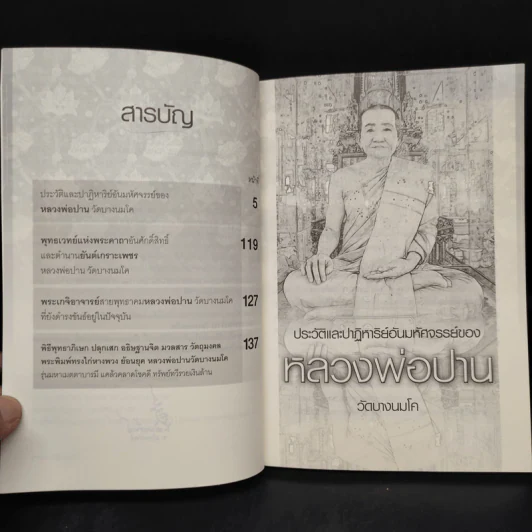 สารบัญ
หน้า
ประวัติและปาฏิหาริย์อันมหัศจรรย์ของ
หลวงพ่อปาน วัดบางนมโค
5
พุทธเวทย์แห่งพระคาถาอันศักดิ์สิทธิ์
และตำนานยันต์เกราะเพชร
หลวงพ่อปาน วัดบางนมโค
119
พระเกจิอาจารย์สายพุทธาคมหลวงพ่อปาน วัดบางนมโค
ที่ยังดำรงขันธ์อยู่ในปัจจุบัน
127
พิธีพุทธาภิเษก ปลุกเสก อธิษฐานจิต มวลสาร วัตถุมงคล
พระพิมพ์ทรงไก่หางพวง ย้อนยุค หลวงพ่อปานวัดบางนมโค
รุ่นมหาเมตตาบารมี แคล้วคลาดโชคดี ทรัพย์ทวีรวยเงินล้าน
137
ประวัติและปาฏิหาริย์อันมหัศจรรย์ของ
หลวงพ่อปาน
วัดบางนมโค